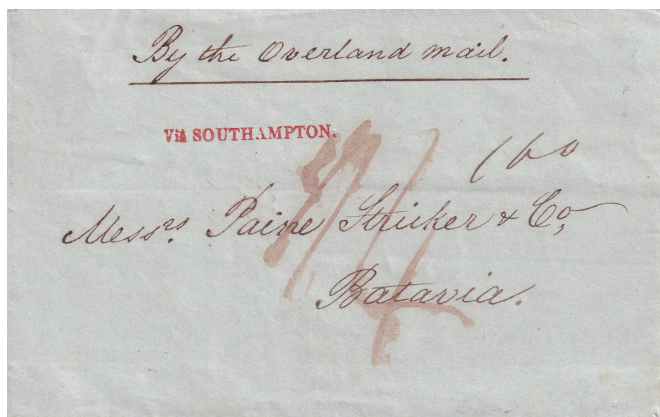 By the Overland mail.
Via SOUTHAMPTON.
160
Messrs. Paine Stricker & Co,
Batavia.
1/4